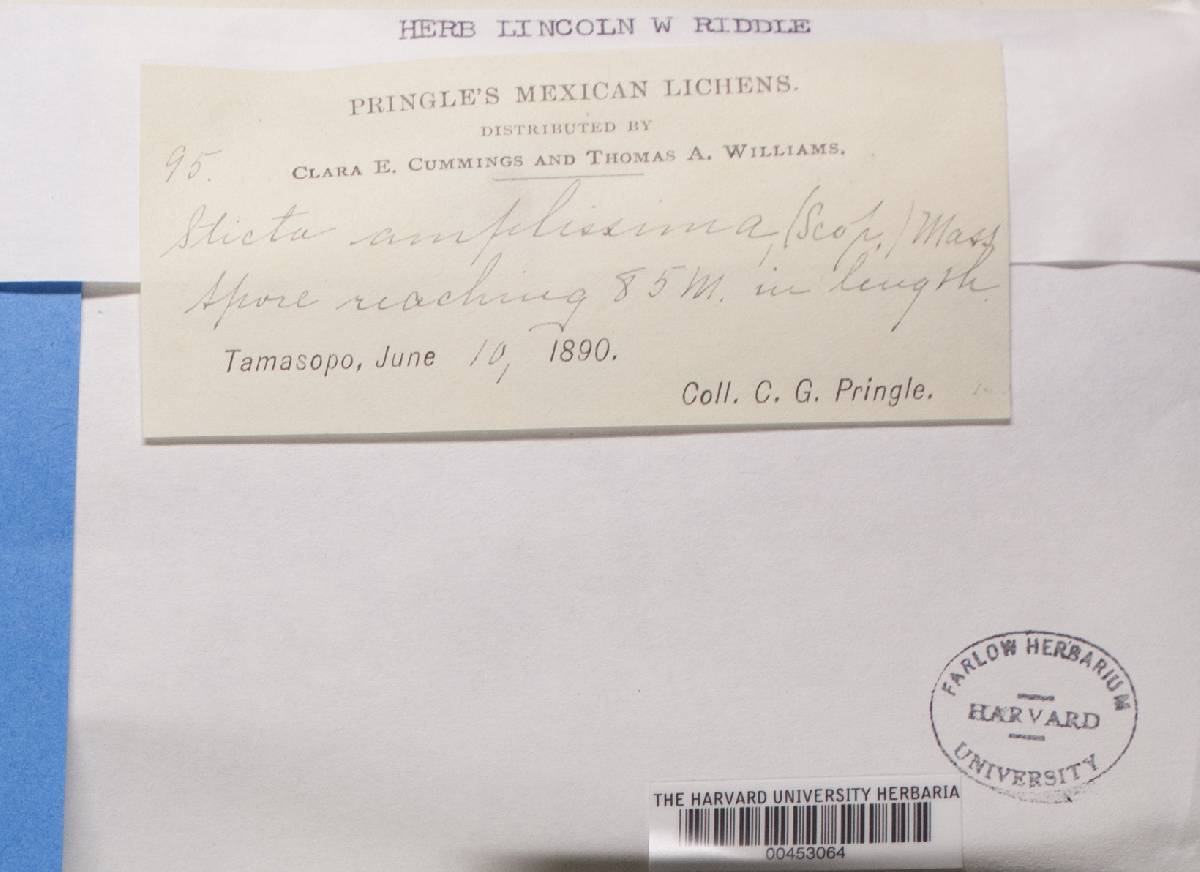 HERB LINCOLN W RIDDLE
PRINGLE'S MEXICAN LICHENS.
DISTRIBUTED BY
95.
CLARA E. CUMMINGS AND THOMAS A. WILLIAMS.
Sticta amplissima, (Scop.) Mass
Spore reaching 85 M. in length.
Tamasopo, June 10, 1890.
Coll. C. G. Pringle.
FARLOW HERBARIUM
HARVARD
UNIVERSITY
THE HARVARD UNIVERSITY HERBARIA
00453064